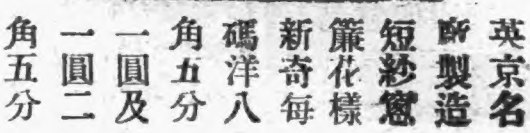 英京名
廠製造
短紗窻
簾花樣
新奇每
碼洋八
角五分
一圓及
一圓二
角五分